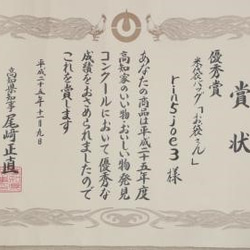 賞状
優秀賞
米袋バッグ「お袋さん」
rin5joe3 様
あなたの商品は平成二十五年度
高知家のいい物・おいしい物発見
コンクールにおいて優秀な
成績をおさめられましたので
これを賞します
平成二十五年十一月九日
高知県知事 尾﨑正直